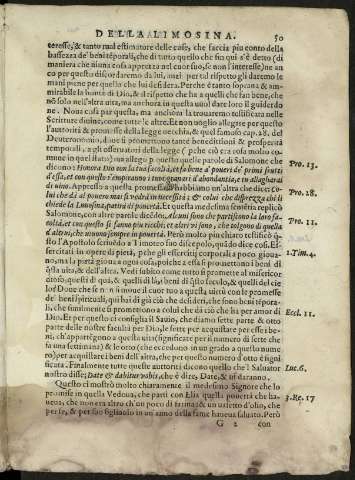 DELLA LIMOSINA. 50
teresse, & tanto mal estimatore delle cose, che faccia piu conto della
bassezza de' beni tēporali, che di tutto quello che fin qui s'è detto (di
maniera che niuna cosa apprezza nel cuor suo, se non l'interesse) ne an
co per questo discordaremo da lui, mai per tal rispetto gli daremo le
mani piene per quello che lui desidera. Perche è tanto soprana & am-
mirabile la bontà di Dio, & il rispetto che ha a quelli che fan bene, che
nō solo nell'altra vita, ma anchora in questa vuol dare loro il guiderdo
ne. Nota cosa è questa, ma anchora la trouaremo testificata nelle
Scritture diuine, come tutte le altre. Et non voglio allegare per questo
l'autorità & promesse della legge vecchia, & quel famoso cap. 28. del
Deuteronomio, doue si promettono tante benedittioni & prosperità
temporali, a gli osseruatori della legge (pche ciò era cosa molto co-
mune in quel stato) ma allego p questo quelle parole di Salomone che
dicono: Honora Dio con la tua facultà, et fa bene a' poueri de' primi frutti
d'essa, et con questo s'empiranno i tuoi granari d'abondātia, & tu allagherai
di uino. Appresso a questa promessa habbiamo un'altra che dice: Co-
lui che dà al pouero mai si vedrà in necessità: & colui che disprezza chi li
chiede la Limosina, patirà di pouertà. Et questa medesima sentētia replicò
Salomone, con altre parole dicēdo, Alcuni sono che partiscono la loro fa-
coltà, et con questo si fanno piu ricchi: et altri vi sono, che tolgono di quella
d'altrui, che uiuono sempre in pouertà. Però molto piu chiaro testificò q̄-
sto l'Apostolo scriuēdo a Timoteo suo discepolo, quādo dice cosi. Es-
sercitati in opere di pietà, pche gli essercitij corporali a poco giouano,
ma la pietà gioua a ogni cosa, poiche a essa si promettono i beni di
q̄sta uita, & dell'altra. Vedi subito come tutto si promette al misericor
dioso, questi di qua, & quelli di là, i beni di q̄sto secolo, & quelli del cie
lo? Doue che se nō si muoue il cuor tuo a questa uirtù con le promesse
de' beni spirituali, qui hai di già ciò che desideri, che sono beni tēpora-
li, che similmente si promettono a colui che dà ciò che ha per amor di
Dio. Et per questo ci consiglia il Sauio, che diamo sette parte & otto
parte delle nostre facultà per Dio, le sette per acquistare per esse i be-
ni, ch'appartengono a questa uita (significate per il numero di sette che
fa una settimana) & le otto (che eccedono in un grado a questo nume
ro) per acquistare i beni dell'altra, che per questo numero d'otto è signi
ficata. Finalmente tutte queste autorità dicono quello che'l Saluator
nostro disse: Date & dabitur vobis, che è dire, Date, & ui daranno.
Questo ci mostrò molto chiaramente il medesimo Signore che lo
promise in quella Vedoua, che partì con Elia quella pouertà che ha-
ueua, che non era altro ch'un poco di farina & un uasetto d'olio, che
per se, & per suo figliuolo in un anno della fame haueua saluato. Però
G 2 con
Pro. 13.
Pro. 28.
Pro. 11.
1. Tim. 4.
Eccl. 11.
Luc. 6.
3. Re. 17